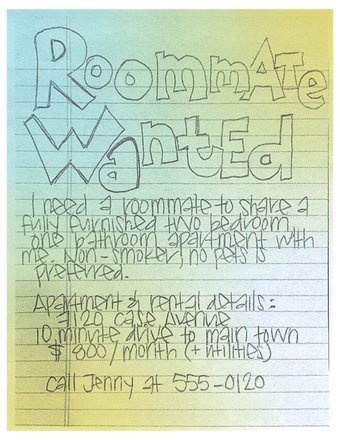 RoommATe
WantEd
I need a roommate to share a
fully furnished two bedroom,
one bathroom apartment with
me. Non-smoker, no pets is
preferred.
Apartment & rental details:
2120 Case Avenue
10 minute drive to main town
$800/month (+ utilities)
call Jenny at 555-0120